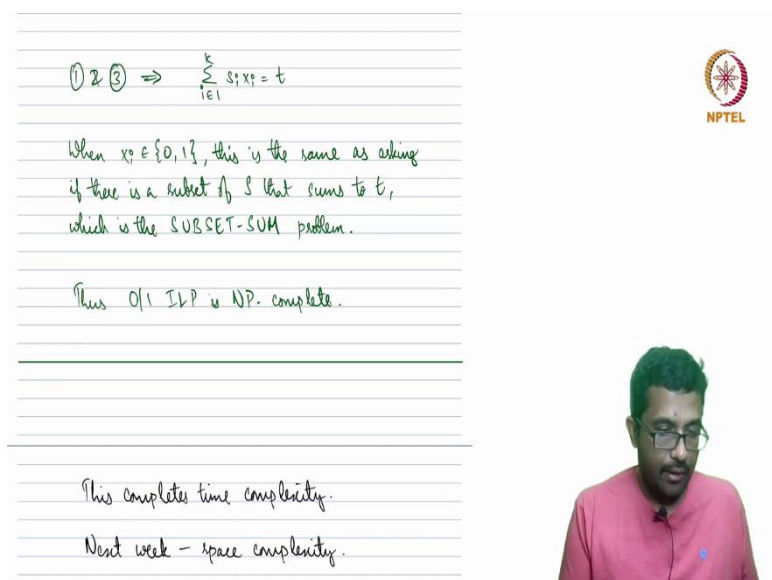 ① & ③ ⇒ k∑i∈1 sᵢxᵢ = t
NPTEL
When xᵢ ∈ {0,1}, this is the same as asking
if there is a subset of S that sums to t,
which is the SUBSET-SUM problem.
Thus 0/1 ILP is NP-complete.
This completes time complexity.
Next week – space complexity.